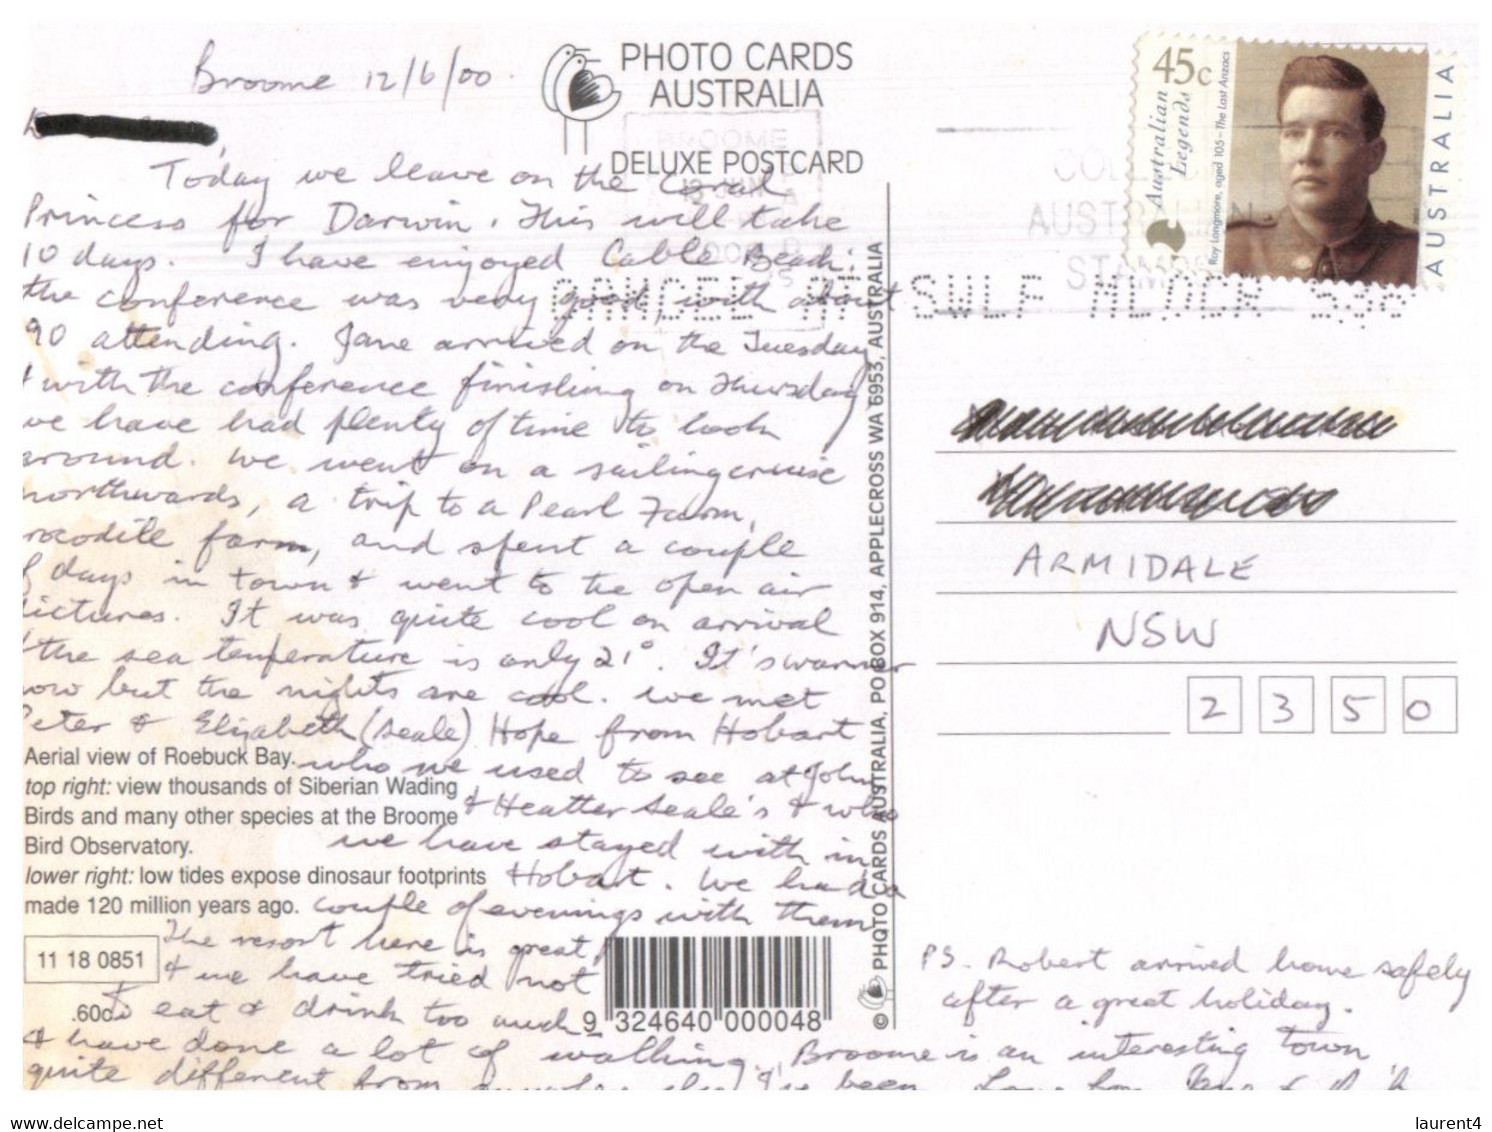 Broome 12/6/00.
Today we leave on the Coral
Princess for Darwin. This will take
10 days. I have enjoyed Cable Beach:
the conference was very good, with about
90 attending. Jane arrived on the Tuesday
& with the conference finishing on Thursday
we have had plenty of time to look
around. We went on a sailing cruise
northwards, a trip to a Pearl Farm,
rocodile farm, and spent a couple
of days in town & went to the open air
ictures. It was quite cool on arrival
& the sea temperature is only 21°. It's warmer
now but the nights are cool. We met
Peter & Elizabeth (Seale) Hope from Hobart
who we used to see at John
& Heather Seale's & who
we have stayed with in
Hobart. We had a
couple of evenings with them
The resort here is great,
& we have tried not
to eat & drink too much
& have done a lot of walking. Broome is an interesting town
quite different from else I've been Love from
PHOTO CARDS
AUSTRALIA
DELUXE POSTCARD
BROOME
45c
Australian
Legends
Roy Longmore, aged 105 – The Last Anzacs
AUSTRALIA
ARMIDALE
NSW
2 3 5 0
Aerial view of Roebuck Bay.
top right: view thousands of Siberian Wading
Birds and many other species at the Broome
Bird Observatory.
lower right: low tides expose dinosaur footprints
made 120 million years ago.
11 18 0851
.60c
9 324640 000048
© PHOTO CARDS AUSTRALIA, PO BOX 914, APPLECROSS WA 6953, AUSTRALIA
PS. Robert arrived home safely
after a great holiday.
www.delcampe.net
laurent4